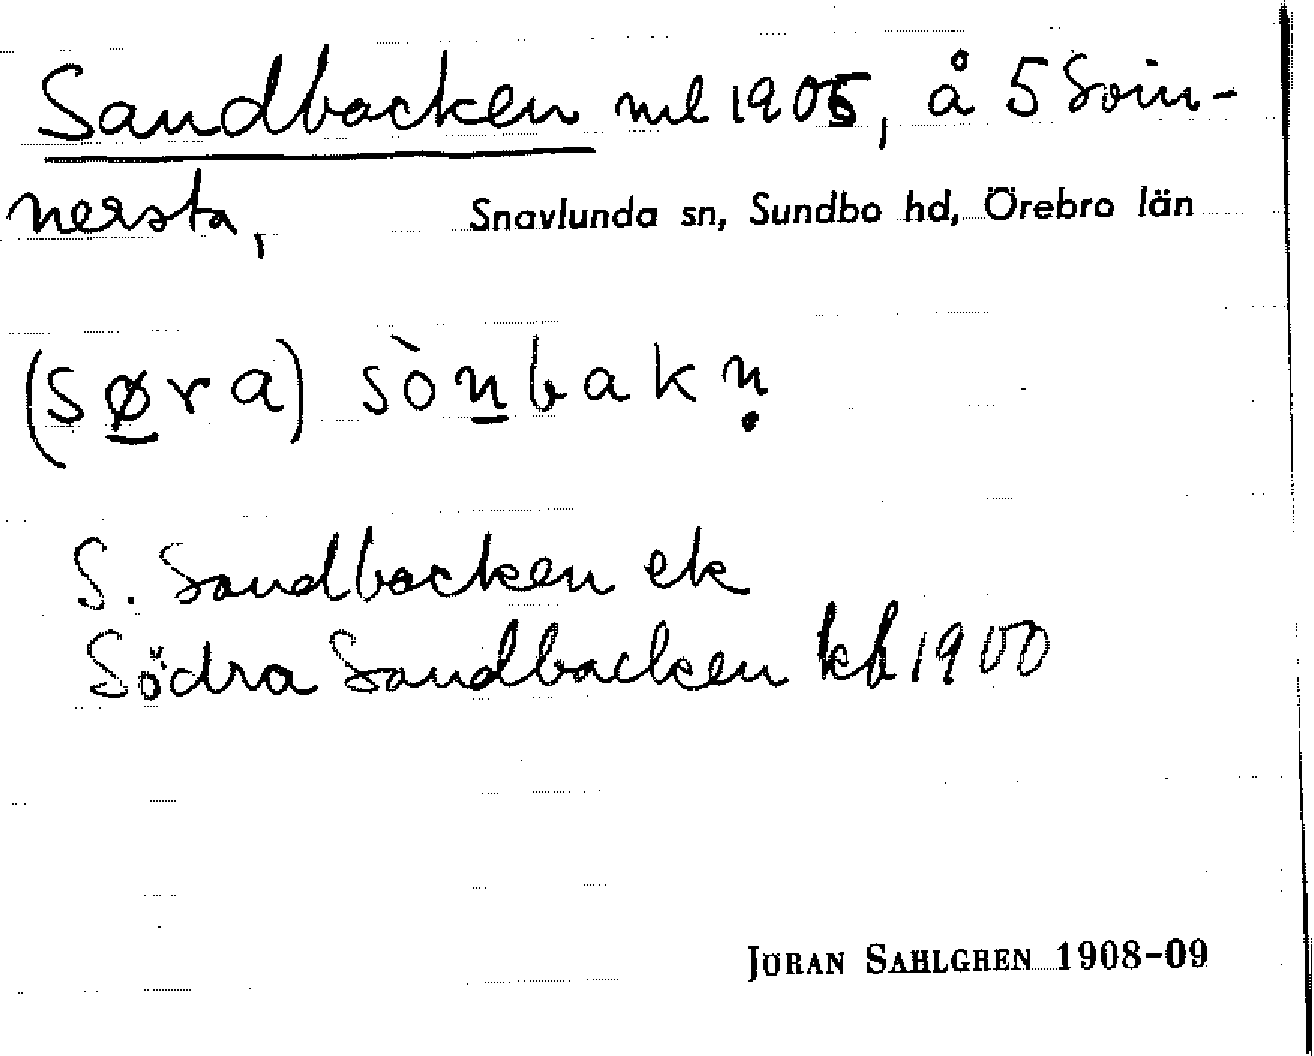 Sandbacken ml 1905, å 5 Söin-
nersta,
Snavlunda sn, Sundbo hd, Örebro län
(søra) sònbakṇ
S. Sandbacken ek
Södra Sandbacken kb 1900
JÖRAN SAHLGREN 1908-09